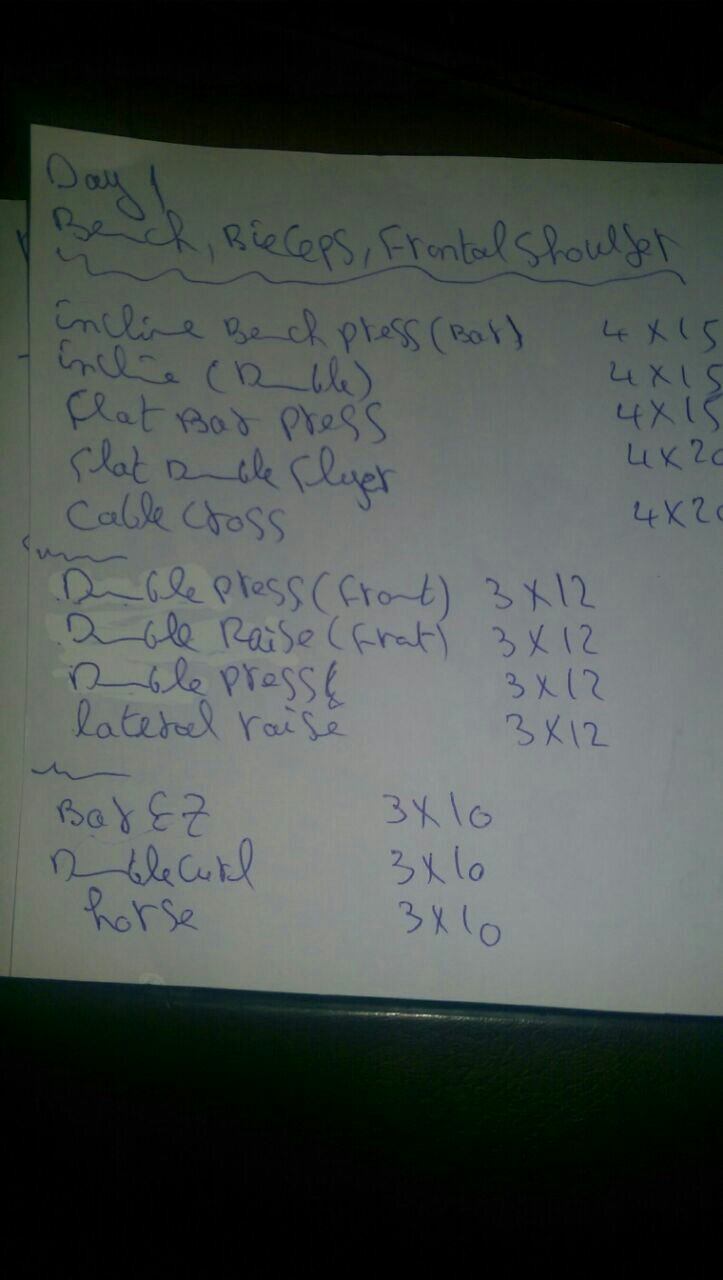 Day 1
Bench, Bieceps, Frontal Shoulder
incline Bench press (Bar) 4 X 15
incline (Dumble) 4 X 15
Flat Bar press 4 X 15
Flat Dumble Flyer 4 X 20
Cable Cross 4 X 20
Dumble press (front) 3 X 12
Dumble Raise (frot) 3 X 12
Dumble press 3 X 12
lateral raise 3 X 12
Bar EZ 3 X 10
Dumble Curl 3 X 10
horse 3 X 10